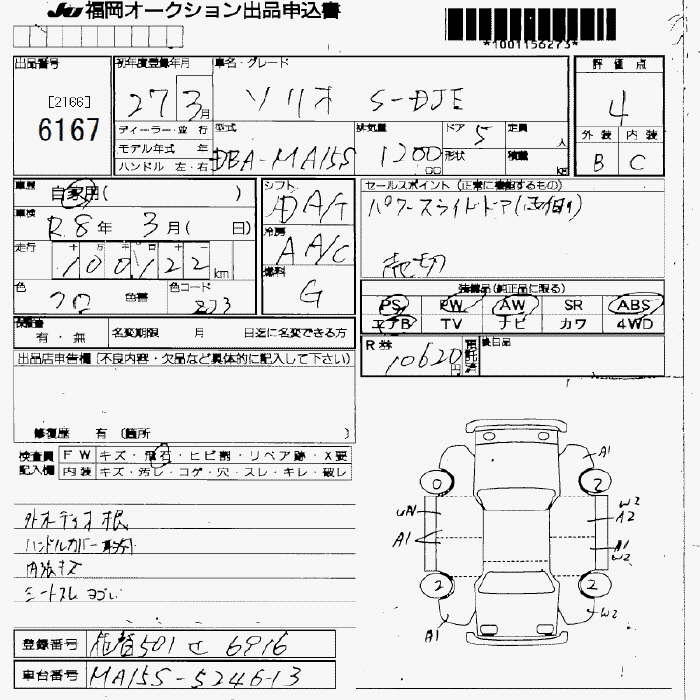 JU 福岡オークション出品申込書
*1001156273*
出品番号 初年度登録年月 車名・グレード 評価点
[2166]
6167
27 3月 ソリオ S-DJE
4
ディーラー・並行 型式 排気量 ドア 定員 人
外装 内装
モデル年式 年 DBA-MA15S 1200cc 5
ハンドル 左・右 形状 積載 kg
B C
車歴 自家用( )
シフト セールスポイント(正常に機能するもの)
車検 R.8年 3月( 日)
A/T パワースライドドア(
走行 十 万 千 百 十 一
100,122km
冷房 A A/C
売切
色 色替 色コード
クロ ZJ3
燃料 G
装備品(純正品に限る)
PS PW AW SR ABS
エアB TV ナビ カワ 4WD
保証書 有・無 名変期限 月 日迄に名変できる方
R券 10620円 預託済 後日品
出品店申告欄(不良内容・欠品など具体的に記入して下さい)
修復歴 有(箇所 )
検査員記入欄
FW キズ・飛石・ヒビ割・リペア跡・X要
内装 キズ・汚レ・コゲ・穴・スレ・キレ・破レ
外オーディオ
ハンドルカバー
内張キズ
シートスレ ヨゴレ
A1
0 2
W2
A1 A2
A1 A1
W2
2 2
A1 W2
登録番号 501 6916
車台番号 MA15S-524613